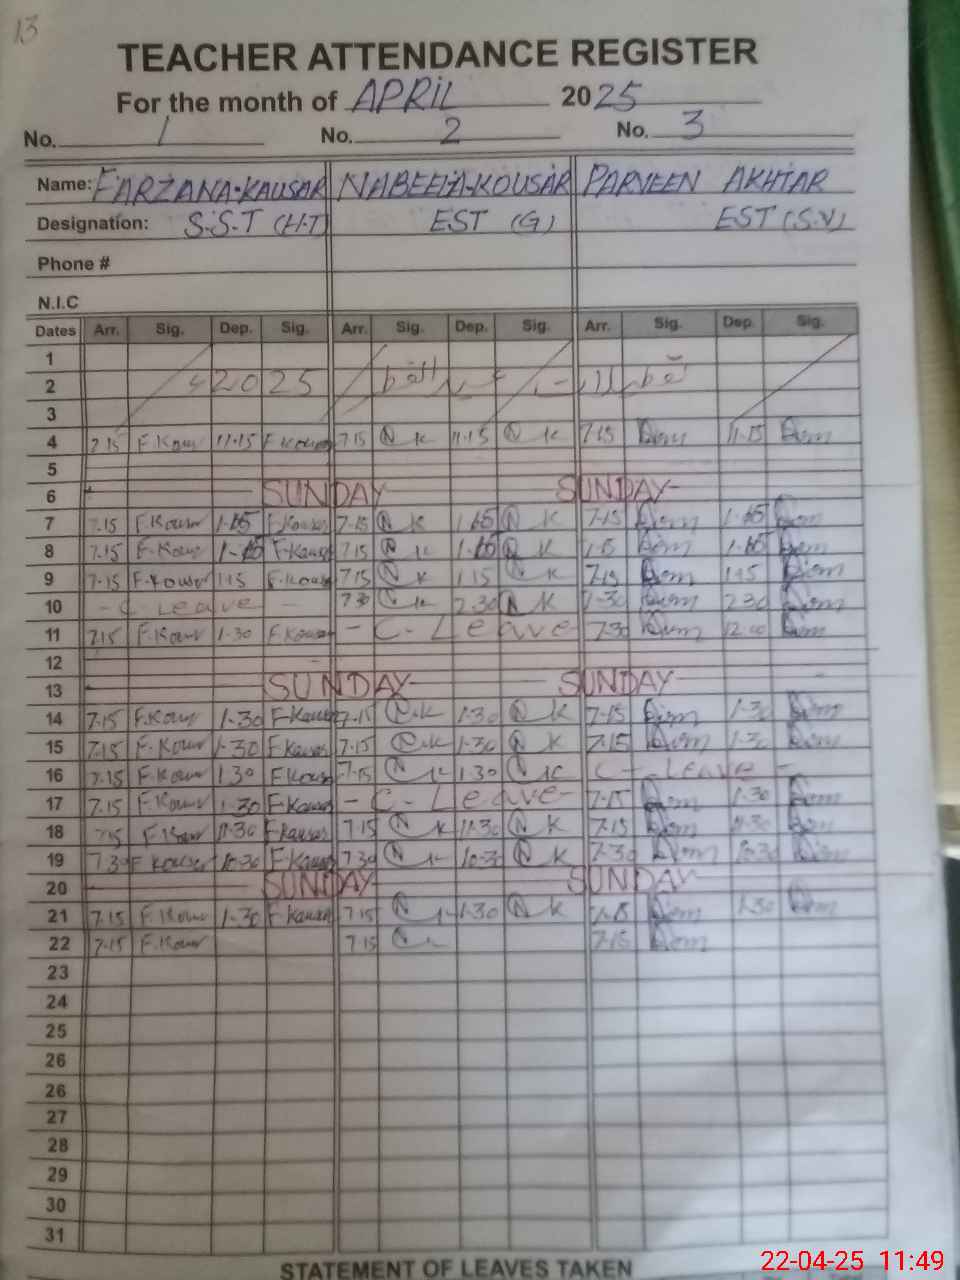 13
TEACHER ATTENDANCE REGISTER
For the month of APRIL 2025
No. 1 No. 2 No. 3
Name: FARZANA KAUSAR NABEELA KOUSAR PARVEEN AKHTAR
Designation: S.S.T (H.T) EST (G) EST (S.V)
Phone #
N.I.C
Dates Arr. Sig. Dep. Sig. Arr. Sig. Dep. Sig. Arr. Sig. Dep. Sig.
1
2 2025
3
4 7.15 F.Kousr 11.15 F.Kousr 7.15 N K 11.15 N K 7.15 11.15
5
6 SUNDAY SUNDAY
7 7.15 F.Kousr F.Kousr 7.15 N K N K 7.15
8 7.15 F.Kousr F.Kousr 7.15 N K N K
9 7.15 F.Kousr 1.15 F.Kousr 7.15 N K 1.15 N K 7.15 1.15
10 - C. Leave - 7.30 N K 2.30 N K 7.30 2.30
11 7.15 F.Kousr 1.30 F.Kousr - C. Leave 7.30
12
13 SUNDAY SUNDAY
14 7.15 F.Kousr 1.30 F.Kousr 7.15 N K 1.30 N K 7.15 1.30
15 7.15 F.Kousr 1.30 F.Kousr 7.15 N K 1.30 N K 7.15 1.30
16 7.15 F.Kousr 1.30 F.Kousr 7.15 N K 1.30 N K C. Leave -
17 7.15 F.Kousr 1.30 F.Kousr - C. Leave - 7.15 1.30
18 7.15 F.Kousr 11.30 F.Kouser 7.15 N K 11.30 N K 7.15 11.30
19 7.30 F.Kouser 10.30 F.Kousr 7.30 N K 10.30 N K 7.30 10.30
20 SUNDAY SUNDAY
21 7.15 F.Kousr 1.30 F.Kousr 7.15 N K 1.30 N K 7.15 1.30
22 7.15 F.Kousr 7.15 N K 7.15
23
24
25
26
26
27
28
29
30
31
STATEMENT OF LEAVES TAKEN
22-04-25 11:49